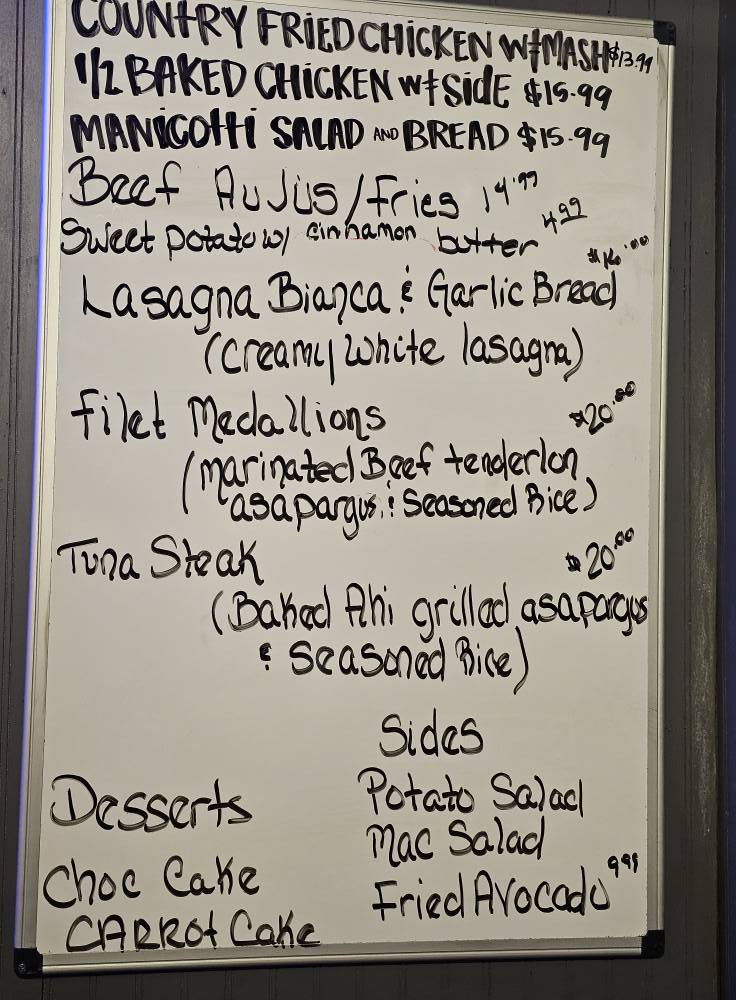 COUNTRY FRIED CHICKEN W/ MASH $13.99
1/2 BAKED CHICKEN W/ SIDE $15.99
MANICOTTI SALAD AND BREAD $15.99
Beef Au Jus/Fries 14.99
Sweet Potato w/ cinnamon butter 4.99
Lasagna Bianca & Garlic Bread $16.00
(creamy white lasagna)
Filet Medallions $20.00
(marinated Beef tenderlon
asapargus & Seasoned Rice)
Tuna Steak $20.00
(Baked Ahi grilled asapargus
& Seasoned Rice)
Sides
Potato Salad
Mac Salad
Fried Avocado 9.99
Desserts
Choc Cake
CARROT Cake